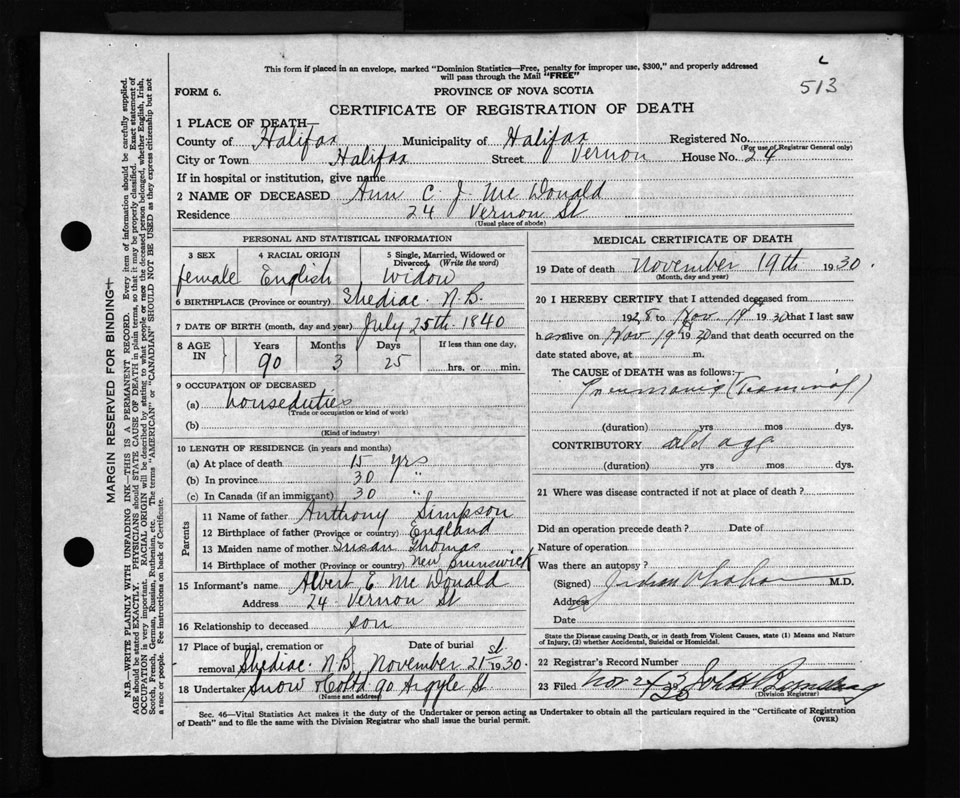 This form if placed in an envelope, marked "Dominion Statistics—Free, penalty for improper use, $300," and properly addressed
will pass through the Mail "FREE"
L
513
FORM 6.
PROVINCE OF NOVA SCOTIA
CERTIFICATE OF REGISTRATION OF DEATH
1 PLACE OF DEATH—
County of Halifax Municipality of Halifax Registered No.
(For use of Registrar General only)
City or Town Halifax Street Vernon House No. 24
If in hospital or institution, give name
2 NAME OF DECEASED Ann C. J. McDonald
Residence 24 Vernon St
(Usual place of abode)
PERSONAL AND STATISTICAL INFORMATION
3 SEX 4 RACIAL ORIGIN 5 Single, Married, Widowed or
Divorced (Write the word)
female English Widow
6 BIRTHPLACE (Province or country) Shediac. N.B.
7 DATE OF BIRTH (month, day and year) July 25th. 1840
8 AGE IN Years Months Days If less than one day,
90 3 25 hrs. or min.
9 OCCUPATION OF DECEASED
(a) houseduties
(Trade or occupation or kind of work)
(b)
(Kind of industry)
10 LENGTH OF RESIDENCE (in years and months)
(a) At place of death 15 yrs
(b) In province 30 "
(c) In Canada (if an immigrant) 30 "
Parents
11 Name of father Anthony Simpson
12 Birthplace of father (Province or country) England
13 Maiden name of mother Susan Thomas
14 Birthplace of mother (Province or country) New Brunswick
15 Informant's name Albert E. McDonald
Address 24 Vernon St
16 Relationship to deceased son
17 Place of burial, cremation or Date of burial
removal Shediac. N.B. November 21st 1930.
18 Undertaker Snow & Co Ltd 90 Argyle St.
(Name and address)
MEDICAL CERTIFICATE OF DEATH
19 Date of death November 19th 1930.
(Month, day and year)
20 I HEREBY CERTIFY that I attended deceased from
1928 to Nov. 19th 1930 that I last saw
her alive on Nov. 19th 1930 and that death occurred on the
date stated above, at m.
The CAUSE of DEATH was as follows:
Pneumonia (Terminal)
(duration) yrs mos dys.
CONTRIBUTORY old age
(duration) yrs. mos. dys.
21 Where was disease contracted if not at place of death?
Did an operation precede death? Date of
Nature of operation
Was there an autopsy?
(Signed) M.D.
Address
Date
State the Disease causing Death, or in death from Violent Causes, state (1) Means and Nature
of Injury, (2) whether Accidental, Suicidal or Homicidal.
22 Registrar's Record Number
23 Filed Nov 24
(Division Registrar)
Sec. 46—Vital Statistics Act makes it the duty of the Undertaker or person acting as Undertaker to obtain all the particulars required in the "Certificate of Registration
of Death" and to file the same with the Division Registrar who shall issue the burial permit.
(OVER)
MARGIN RESERVED FOR BINDING
N.B.—WRITE PLAINLY WITH UNFADING INK—THIS IS A PERMANENT RECORD. Every item of information should be carefully supplied.
AGE should be stated EXACTLY. PHYSICIANS should STATE CAUSE OF DEATH in plain terms, so that it may be properly classified. Exact statement of
OCCUPATION is very important. RACIAL ORIGIN will be described by stating to what people or race the deceased person belonged, whether English, Irish,
Scotch, French, German, Russian, Ruthenian, etc. The terms "AMERICAN" or "CANADIAN" SHOULD NOT BE USED as they express citizenship but not
a race or people. See instructions on back of Certificate.